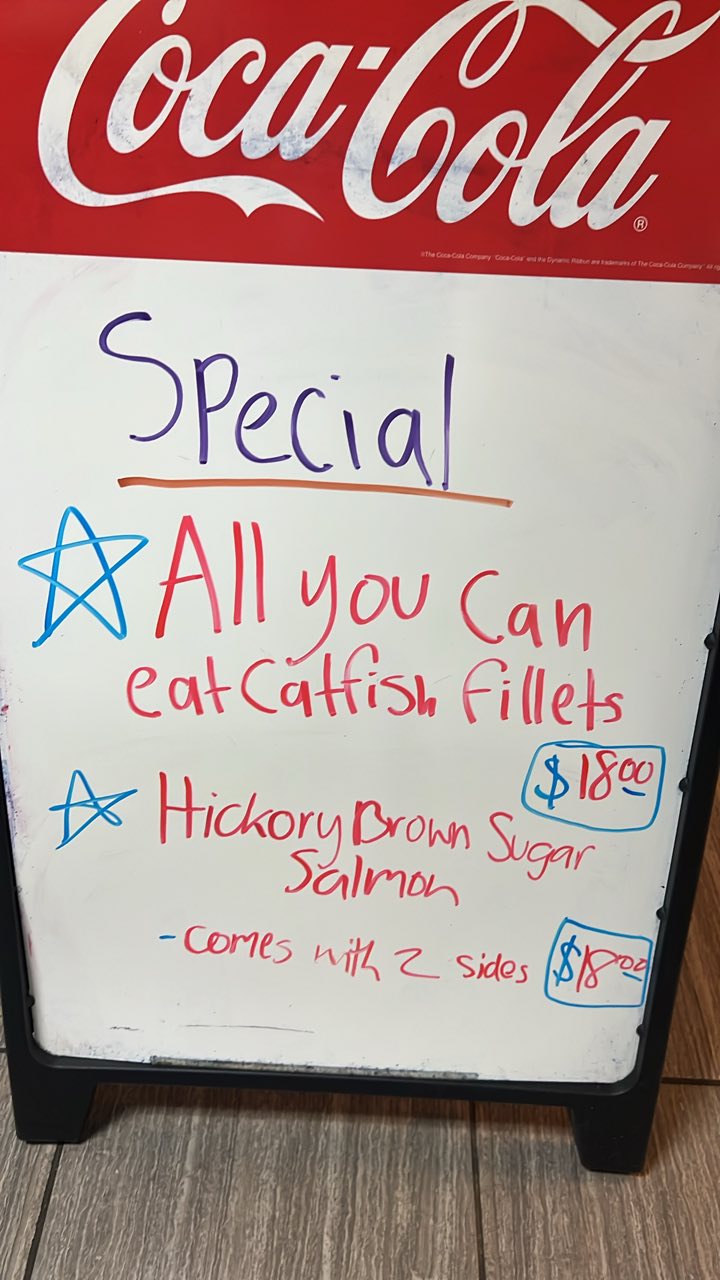 Coca-Cola
®
©The Coca-Cola Company "Coca-Cola" and the Dynamic Ribbon are trademarks of The Coca-Cola Company
Special
All you Can
eat Catfish fillets
$1800
Hickory Brown Sugar
Salmon
-comes with 2 sides $1800